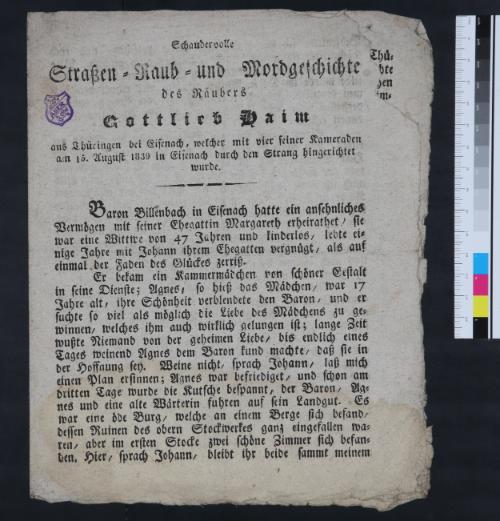 Schaudervolle
Straßen-Raub- und Mordgeschichte
des Räubers
Gottlieb Haim
aus Thüringen bei Eisenach, welcher mit vier seiner Kameraden
am 15. August 1839 in Eisenach durch den Strang hingerichtet
wurde.
Baron Billenbach in Eisenach hatte ein ansehnliches
Vermögen mit seiner Ehegattin Margareth erheirathet, sie
war eine Wittwe von 47 Jahren und kinderlos, lebte ei-
nige Jahre mit Johann ihrem Ehegatten vergnügt, als auf
einmal der Faden des Glückes zerriß.
Er bekam ein Kammermädchen von schöner Gestalt
in seine Dienste; Agnes, so hieß das Mädchen, war 17
Jahre alt, ihre Schönheit verblendete den Baron, und er
suchte so viel als möglich die Liebe des Mädchens zu ge-
winnen, welches ihm auch wirklich gelungen ist; lange Zeit
wußte Niemand von der geheimen Liebe, bis endlich eines
Tages weinend Agnes dem Baron kund machte, daß sie in
der Hoffnung sey. Weine nicht, sprach Johann, laß mich
einen Plan ersinnen; Agnes war befriediget, und schon am
dritten Tage wurde die Kutsche bespannt, der Baron, Ag-
nes und eine alte Wärterin fuhren auf sein Landgut. Es
war eine öde Burg, welche an einem Berge sich befand,
dessen Ruinen des obern Stockwerkes ganz eingefallen wa-
ren, aber im ersten Stocke zwei schöne Zimmer sich befan-
den. Hier, sprach Johann, bleibt ihr beide sammt meinem
Thü-